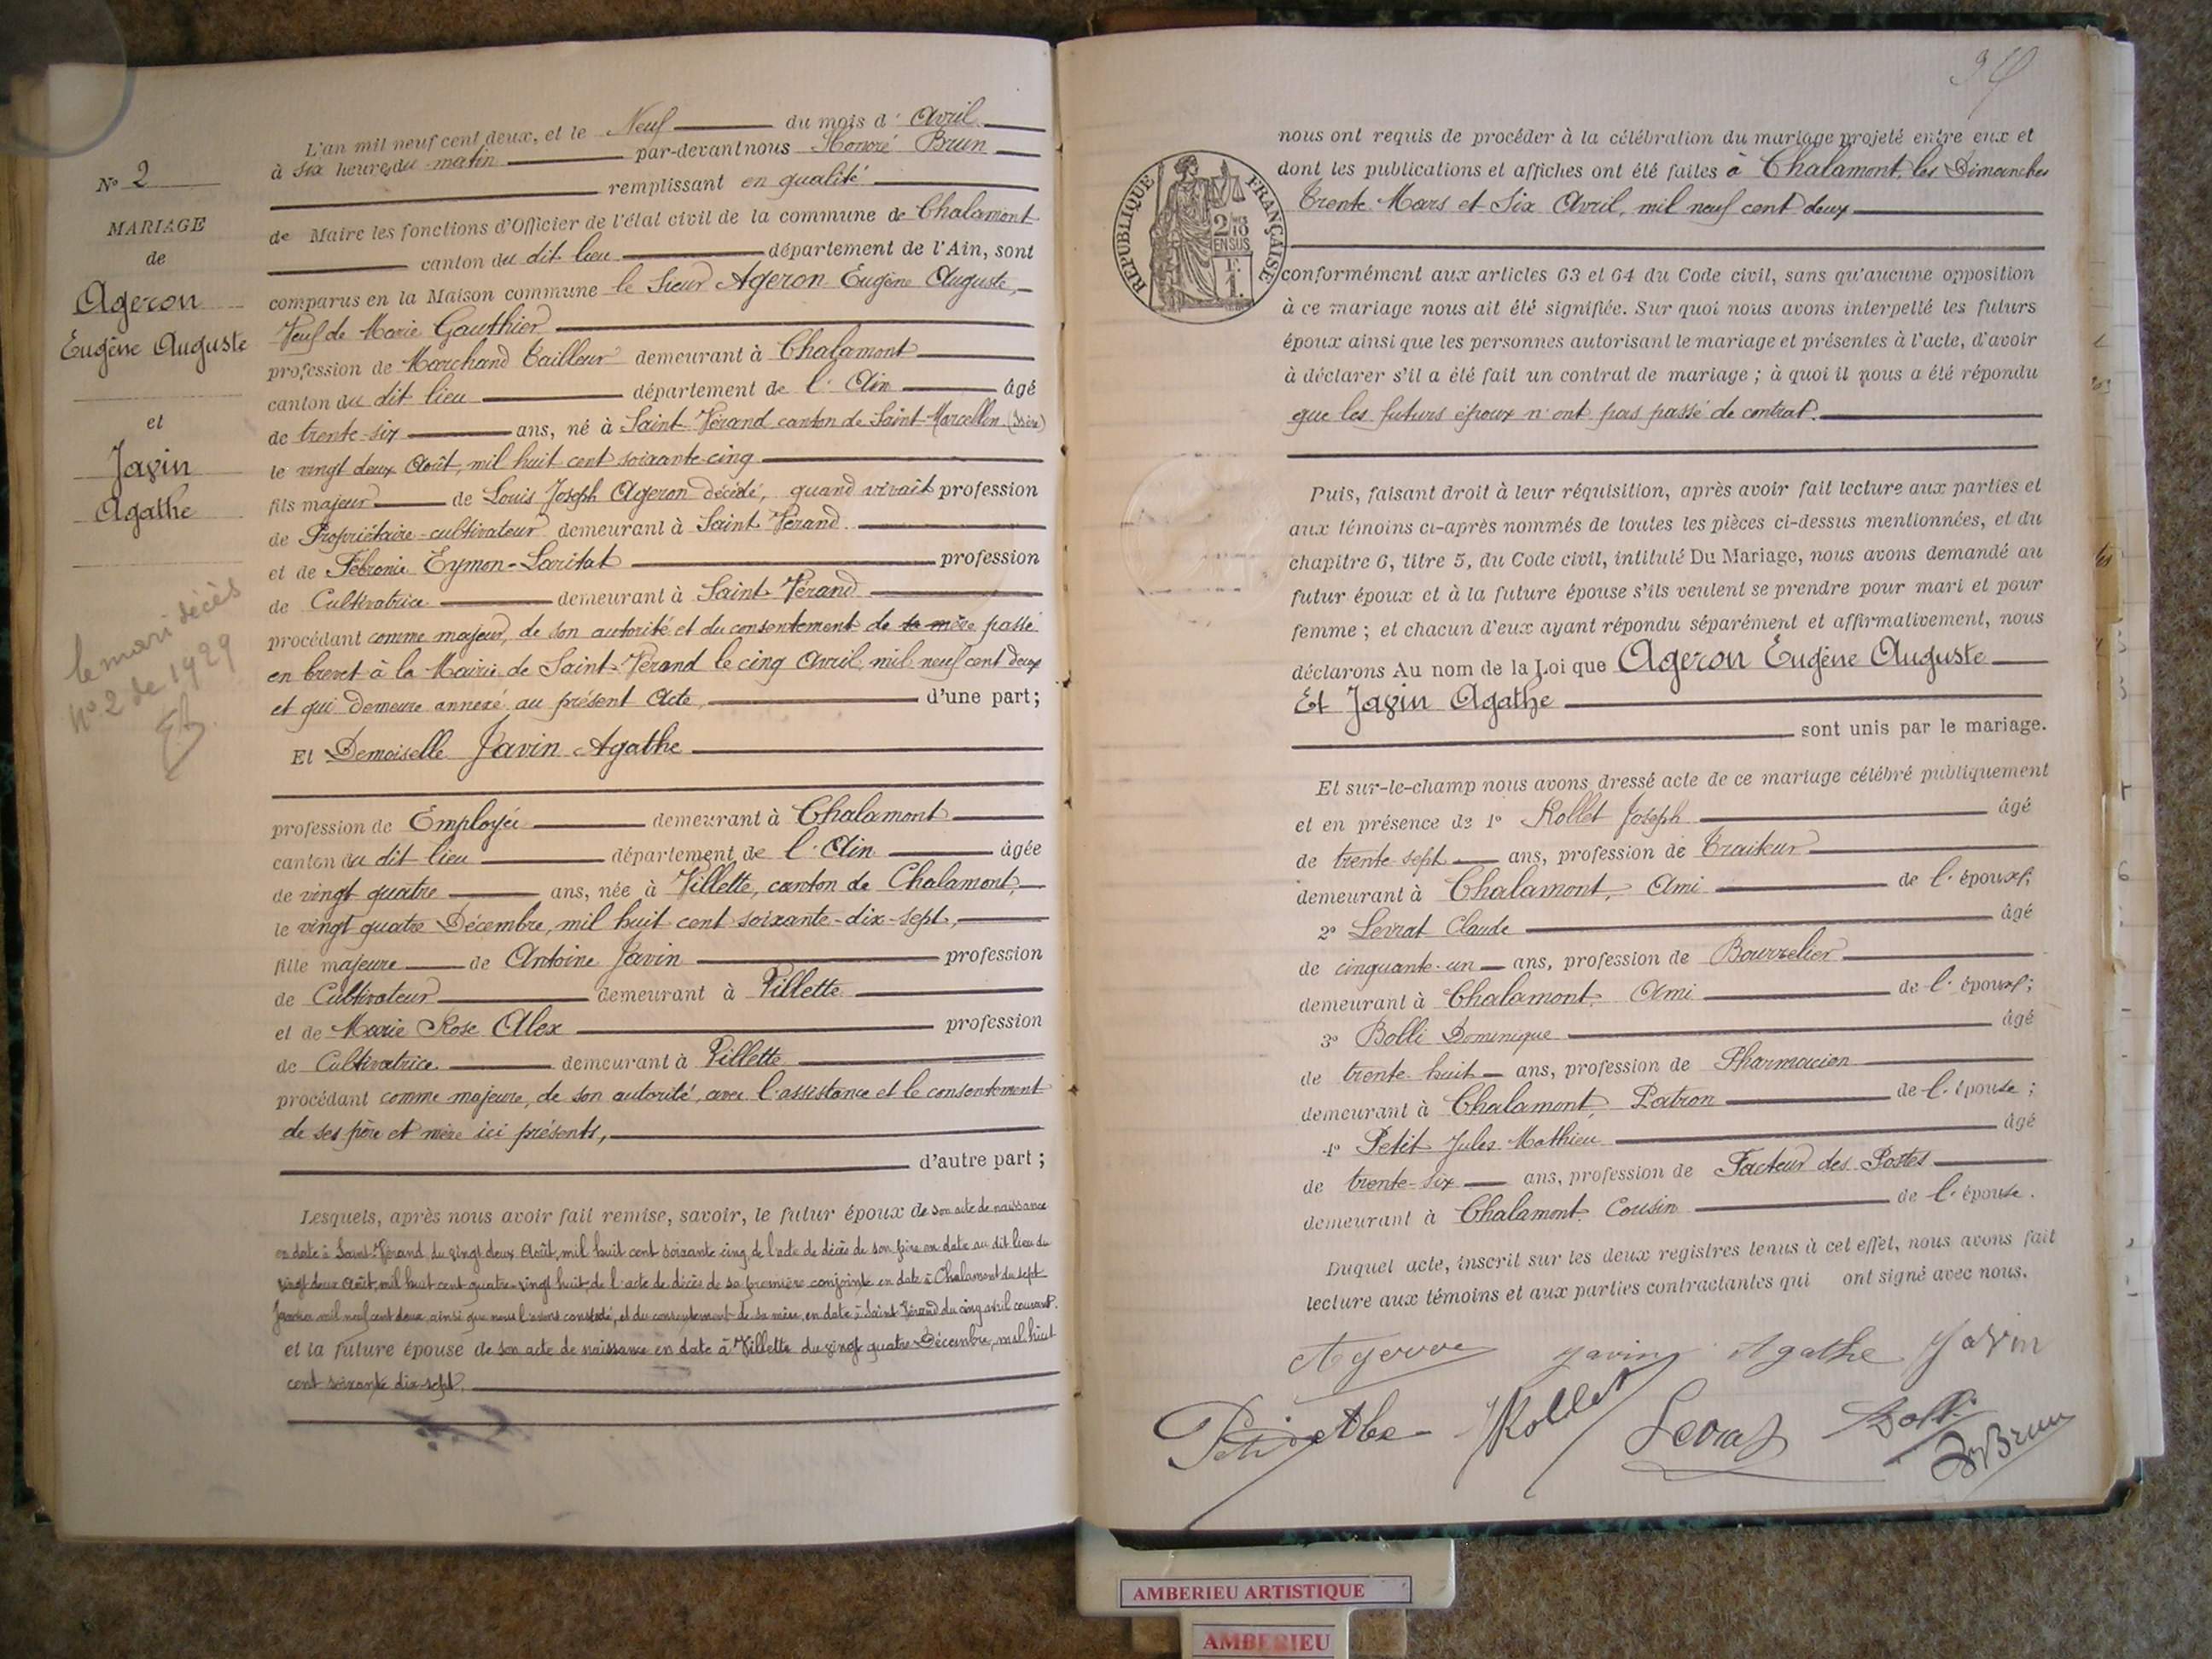 N° 2
MARIAGE
de
Ageron
Eugène Auguste
et
Javin
Agathe
le mari décès
n° 2 de 1929
L'an mil neuf cent deux, et le Neuf du mois d' Avril
à six heures du matin par-devant nous Honoré Brun
remplissant en qualité
de Maire les fonctions d'Officier de l'état civil de la commune de Chalamont
canton du dit lieu département de l'Ain, sont
comparus en la Maison commune le Sieur Ageron Eugène Auguste,
Veuf de Marie Gauthier
profession de Marchand Tailleur demeurant à Chalamont
canton du dit lieu département de l'Ain âgé
de trente-six ans, né à Saint Vérand canton de Saint-Marcellin (Isère)
le vingt deux Août, mil huit cent soixante-cinq
fils majeur de Louis Joseph Ageron décédé, quand vivait profession
de Propriétaire-cultivateur demeurant à Saint Vérand
et de Fébronie Eymon-Laritat profession
de Cultivatrice demeurant à Saint-Vérand
procédant comme majeur, de son autorité et du consentement de sa mère passé
en brevet à la Mairie de Saint-Vérand le cinq Avril, mil neuf cent deux
et qui demeure annexé au présent Acte, d'une part;
Et Demoiselle Javin Agathe
profession de Employée demeurant à Chalamont
canton du dit lieu département de l'Ain âgée
de vingt quatre ans, née à Villette, canton de Chalamont,
le vingt quatre Décembre, mil huit cent soixante-dix-sept,
fille majeure de Antoine Javin profession
de Cultivateur demeurant à Villette
et de Marie Rose Alex profession
de Cultivatrice demeurant à Villette
procédant comme majeure, de son autorité, avec l'assistance et le consentement
de ses père et mère ici présents,
d'autre part ;
Lesquels, après nous avoir fait remise, savoir, le futur époux de son acte de naissance
en date à Saint-Vérand du vingt deux Août, mil huit cent soixante cinq, de l'acte de décès de son père en date au dit lieu du
vingt deux Août, mil huit cent quatre-vingt huit, de l'acte de décès de sa première conjointe en date à Chalamont du sept
Janvier mil neuf cent deux, ainsi que nous l'avons constaté, et du consentement de sa mère, en date à Saint Vérand du cinq avril courant.
et la future épouse de son acte de naissance en date à Villette du vingt quatre Décembre, mil huit
cent soixante dix-sept.
nous ont requis de procéder à la célébration du mariage projeté entre eux et
dont les publications et affiches ont été faites à Chalamont, les Dimanches
Trente Mars et Six Avril, mil neuf cent deux
RÉPUBLIQUE FRANÇAISE
2/10
EN SUS
1 F.
conformément aux articles 63 et 64 du Code civil, sans qu'aucune opposition
à ce mariage nous ait été signifiée. Sur quoi nous avons interpellé les futurs
époux ainsi que les personnes autorisant le mariage et présentes à l'acte, d'avoir
à déclarer s'il a été fait un contrat de mariage ; à quoi il nous a été répondu
que les futurs époux n'ont pas passé de contrat.
Puis, faisant droit à leur réquisition, après avoir fait lecture aux parties et
aux témoins ci-après nommés de toutes les pièces ci-dessus mentionnées, et du
chapitre 6, titre 5, du Code civil, intitulé Du Mariage, nous avons demandé au
futur époux et à la future épouse s'ils veulent se prendre pour mari et pour
femme ; et chacun d'eux ayant répondu séparément et affirmativement, nous
déclarons Au nom de la Loi que Ageron Eugène Auguste
Et Javin Agathe
sont unis par le mariage.
Et sur-le-champ nous avons dressé acte de ce mariage célébré publiquement
et en présence de 1° Rollet Joseph âgé
de trente sept ans, profession de Traiteur
demeurant à Chalamont, Ami de l'époux;
2° Levrat Claude âgé
de cinquante-un ans, profession de Bourrelier
demeurant à Chalamont, Ami de l'époux;
3° Bolli Dominique âgé
de trente huit ans, profession de Pharmacien
demeurant à Chalamont, Patron de l'épouse ;
4° Petit Jules Mathieu âgé
de trente-six ans, profession de Facteur des Postes
demeurant à Chalamont, Cousin de l'épouse.
Duquel acte, inscrit sur les deux registres tenus à cet effet, nous avons fait
lecture aux témoins et aux parties contractantes qui ont signé avec nous.
Ageron Javin Agathe Javin
Petit Alex Rollet Levrat Bolli
Brun
AMBERIEU ARTISTIQUE
AMBERIEU